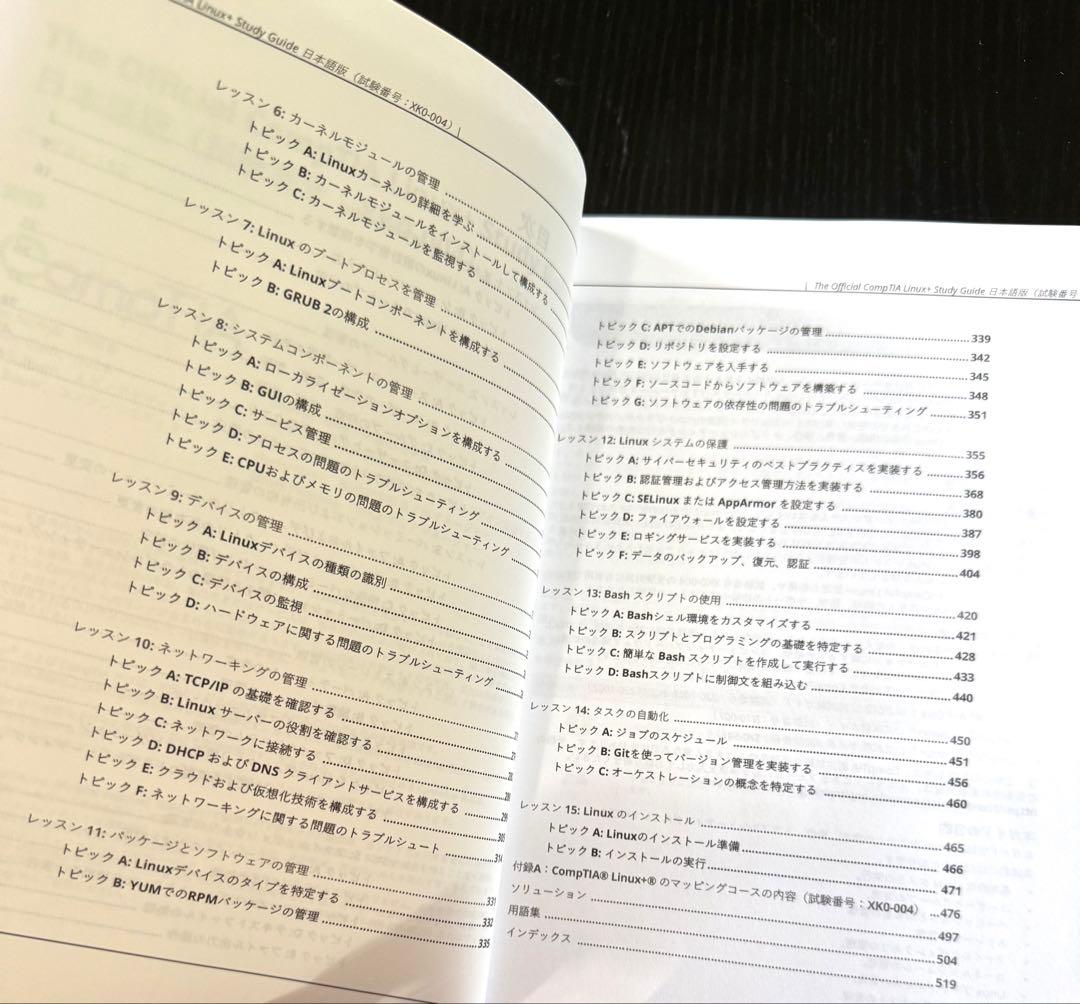 Linux+ Study Guide 日本語版（試験番号：XK0-004） |
レッスン 6: カーネルモジュールの管理
トピック A: Linuxカーネルの詳細を学ぶ
トピック B: カーネルモジュールをインストールして構成する
トピック C: カーネルモジュールを監視する
レッスン 7: Linux のブートプロセスを管理
トピック A: Linuxブートコンポーネントを構成する
トピック B: GRUB 2の構成
レッスン 8: システムコンポーネントの管理
トピック A: ローカライゼーションオプションを構成する
トピック B: GUIの構成
トピック C: サービス管理
トピック D: プロセスの問題のトラブルシューティング
トピック E: CPUおよびメモリの問題のトラブルシューティング
レッスン 9: デバイスの管理
トピック A: Linuxデバイスの種類の識別
トピック B: デバイスの構成
トピック C: デバイスの監視
トピック D: ハードウェアに関する問題のトラブルシューティング
レッスン 10: ネットワーキングの管理
トピック A: TCP/IP の基礎を確認する
トピック B: Linux サーバーの役割を確認する
トピック C: ネットワークに接続する
トピック D: DHCP および DNS クライアントサービスを構成する
トピック E: クラウドおよび仮想化技術を構成する
トピック F: ネットワーキングに関する問題のトラブルシュート 314
レッスン 11: パッケージとソフトウェアの管理 331
トピック A: Linuxデバイスのタイプを特定する 332
トピック B: YUMでのRPMパッケージの管理 335
| The Official CompTIA Linux+ Study Guide 日本語版（試験番号
トピック C: APTでのDebianパッケージの管理 339
トピック D: リポジトリを設定する 342
トピック E: ソフトウェアを入手する 345
トピック F: ソースコードからソフトウェアを構築する 348
トピック G: ソフトウェアの依存性の問題のトラブルシューティング 351
レッスン 12: Linux システムの保護 355
トピック A: サイバーセキュリティのベストプラクティスを実装する 356
トピック B: 認証管理およびアクセス管理方法を実装する 368
トピック C: SELinux または AppArmor を設定する 380
トピック D: ファイアウォールを設定する 387
トピック E: ロギングサービスを実装する 398
トピック F: データのバックアップ、復元、認証 404
レッスン 13: Bash スクリプトの使用 420
トピック A: Bashシェル環境をカスタマイズする 421
トピック B: スクリプトとプログラミングの基礎を特定する 428
トピック C: 簡単な Bash スクリプトを作成して実行する 433
トピック D: Bashスクリプトに制御文を組み込む 440
レッスン 14: タスクの自動化 450
トピック A: ジョブのスケジュール 451
トピック B: Gitを使ってバージョン管理を実装する 456
トピック C: オーケストレーションの概念を特定する 460
レッスン 15: Linux のインストール 465
トピック A: Linuxのインストール準備 466
トピック B: インストールの実行 471
付録A：CompTIA® Linux+® のマッピングコースの内容（試験番号：XK0-004） 476
ソリューション 497
用語集 504
インデックス 519